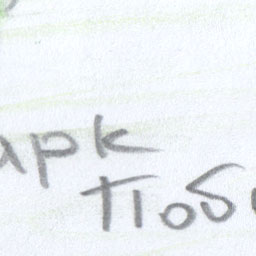 арк
Поб